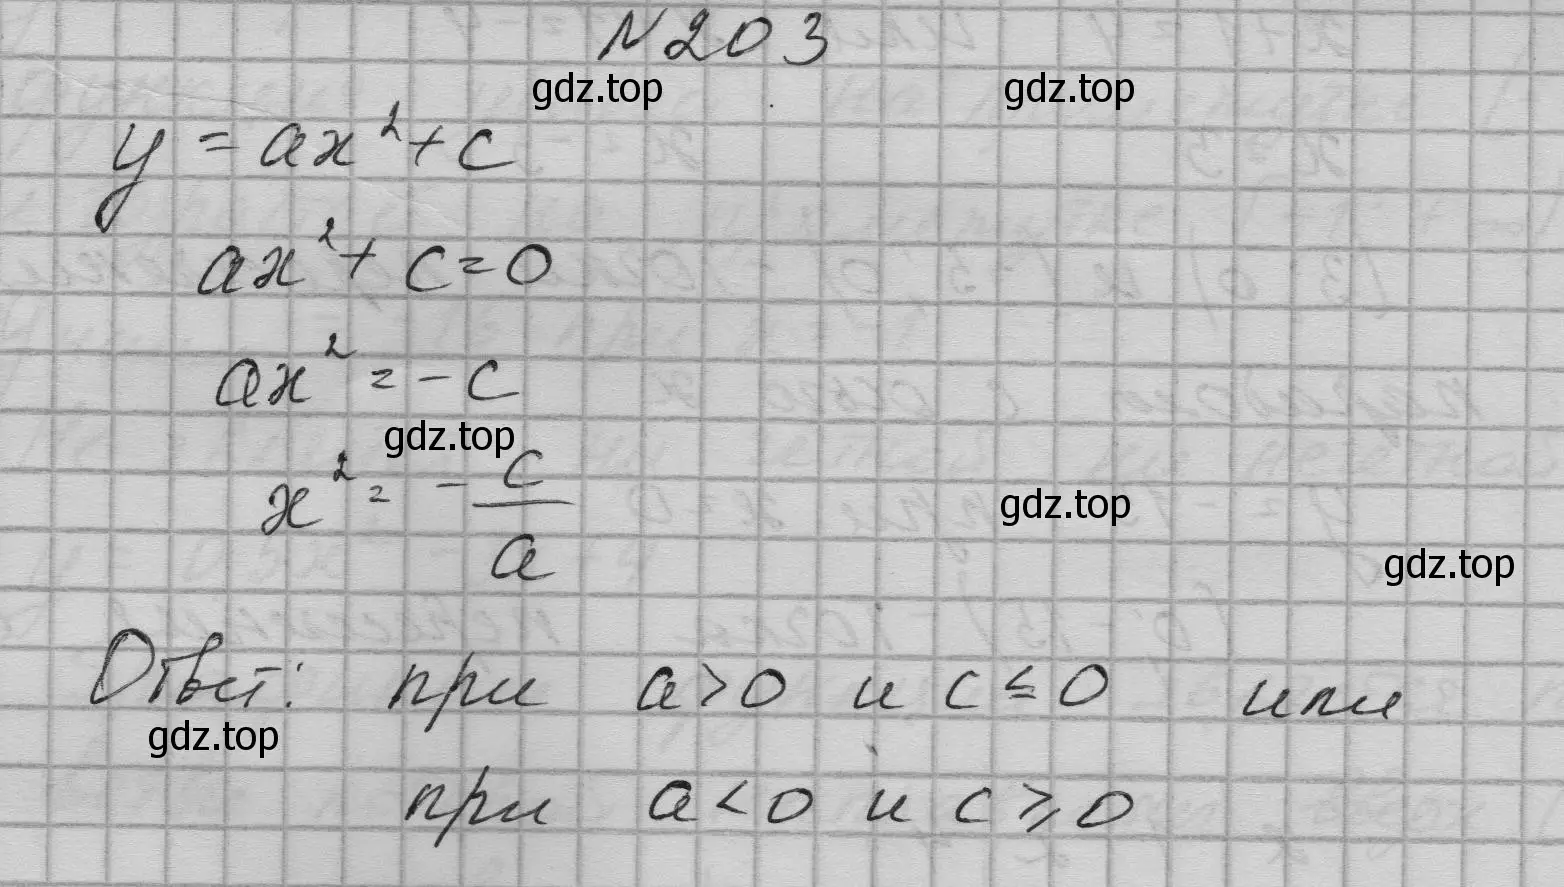 №203
gdz.top gdz.top
y = ax² + c
ax² + c = 0
ax² = - c
gdz.top
x² = - c/a
gdz.top
gdz.top
Ответ: при a > 0 и c ≤ 0 или
gdz.top
при a < 0 и c ⩾ 0